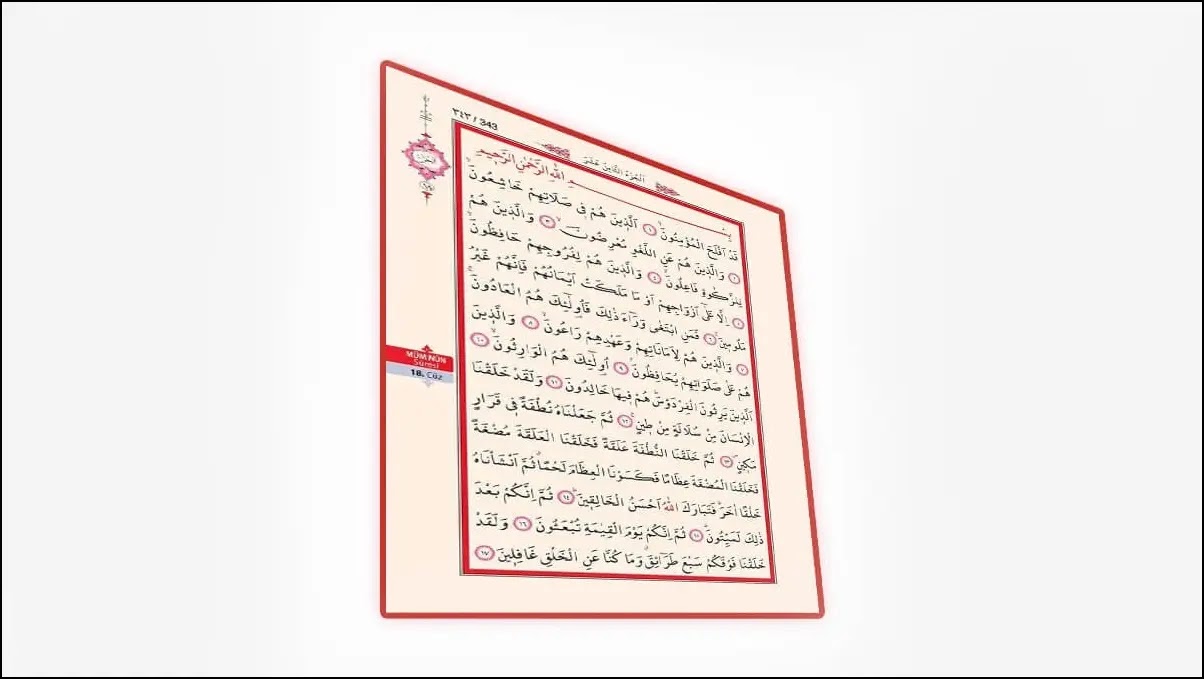 ٣٤٣ / 343
اَلْجُزْءُ الثَّامِنُ عَشَرَ
بِسْمِ اللّٰهِ الرَّحْمٰنِ الرَّحِيمِ
قَدْ اَفْلَحَ الْمُؤْمِنُونَۙ ١ اَلَّذِينَ هُمْ فِي صَلَاتِهِمْ خَاشِعُونَۙ
٢ وَالَّذِينَ هُمْ عَنِ اللَّغْوِ مُعْرِضُونَۙ ٣ وَالَّذِينَ هُمْ
لِلزَّكٰوةِ فَاعِلُونَۙ ٤ وَالَّذِينَ هُمْ لِفُرُوجِهِمْ حَافِظُونَۙ
٥ اِلَّا عَلٰٓى اَزْوَاجِهِمْ اَوْ مَا مَلَكَتْ اَيْمَانُهُمْ فَاِنَّهُمْ غَيْرُ
مَلُومِينَۚ ٦ فَمَنِ ابْتَغٰى وَرَٓاءَ ذٰلِكَ فَاُولٰٓئِكَ هُمُ الْعَادُونَۚ
٧ وَالَّذِينَ هُمْ لِاَمَانَاتِهِمْ وَعَهْدِهِمْ رَاعُونَۙ ٨ وَالَّذِينَ
هُمْ عَلٰى صَلَوَاتِهِمْ يُحَافِظُونَۢ ٩ اُولٰٓئِكَ هُمُ الْوَارِثُونَۙ ١٠
اَلَّذِينَ يَرِثُونَ الْفِرْدَوْسَۜ هُمْ فِيهَا خَالِدُونَ ١١ وَلَقَدْ خَلَقْنَا
الْاِنْسَانَ مِنْ سُلَالَةٍ مِنْ طِينٍۚ ١٢ ثُمَّ جَعَلْنَاهُ نُطْفَةً فِي قَرَارٍ
مَكِينٍۖ ١٣ ثُمَّ خَلَقْنَا النُّطْفَةَ عَلَقَةً فَخَلَقْنَا الْعَلَقَةَ مُضْغَةً
فَخَلَقْنَا الْمُضْغَةَ عِظَامًا فَكَسَوْنَا الْعِظَامَ لَحْمًاۗ ثُمَّ اَنْشَأْنَاهُ
خَلْقًا اٰخَرَۜ فَتَبَارَكَ اللّٰهُ اَحْسَنُ الْخَالِقِينَۜ ١٤ ثُمَّ اِنَّكُمْ بَعْدَ
ذٰلِكَ لَمَيِّتُونَۜ ١٥ ثُمَّ اِنَّكُمْ يَوْمَ الْقِيٰمَةِ تُبْعَثُونَ ١٦ وَلَقَدْ
خَلَقْنَا فَوْقَكُمْ سَبْعَ طَرَٓائِقَۗ وَمَا كُنَّا عَنِ الْخَلْقِ غَافِلِينَ ١٧
MÜM'NÛN
Sûresi
18. Cüz